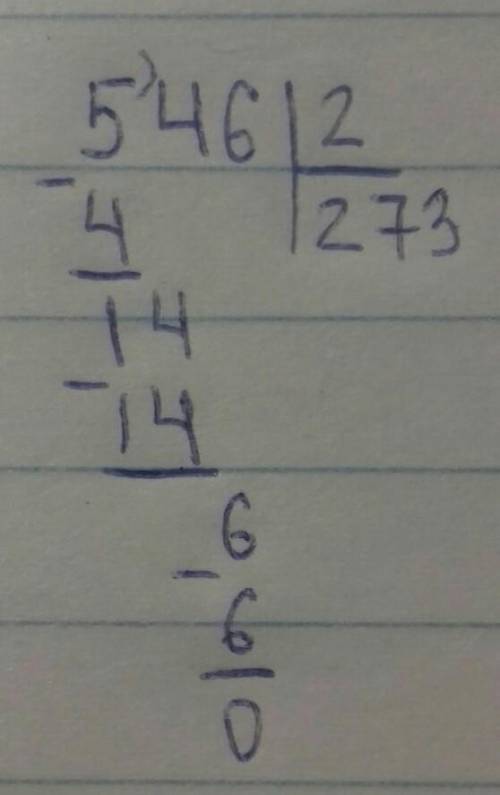 5'46 | 2
- 4 | 273
14
- 14
6
- 6
0